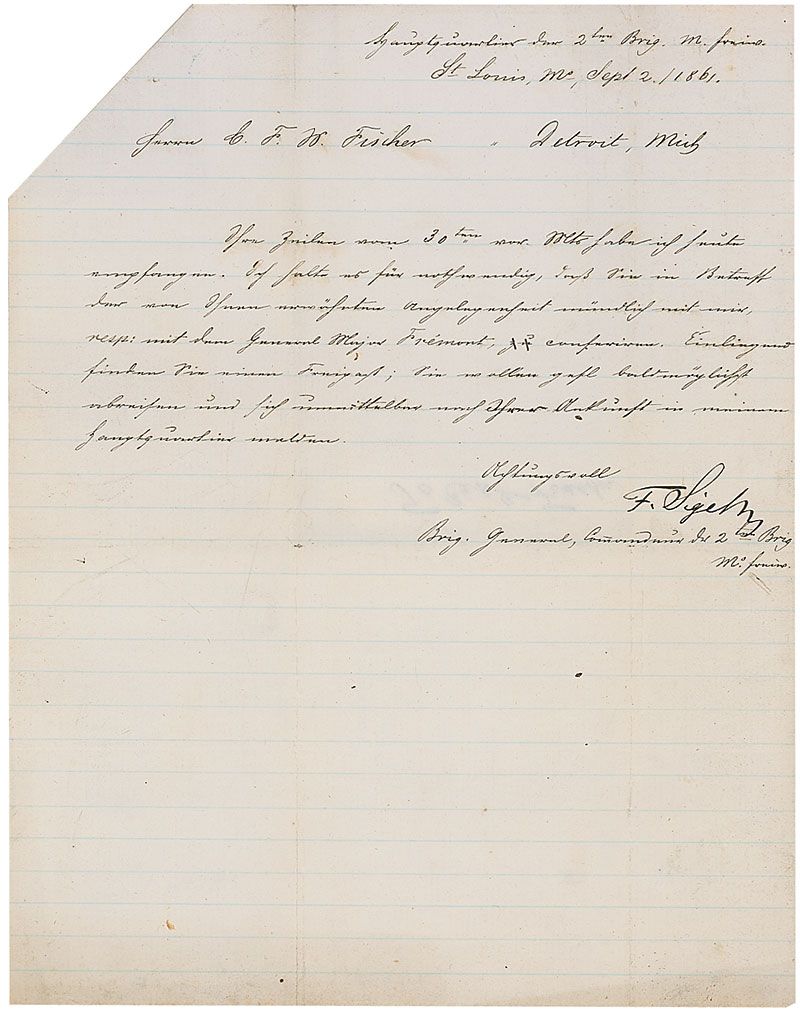 Hauptquartier der 2ten Brig. M. freiw.
St Louis, Mo, Sept 2./1861.
Herrn C. F. W. Fischer " Detroit, Mich
Ihre Zeilen vom 30ten vor. Mts habe ich heute
empfangen. Ich halte es für nothwendig, daß Sie in Betreff
der von Ihnen erwähnten Angelegenheit mündlich mit mir,
resp: mit dem General Major Frémont, zu conferiren. Einliegend
finden Sie einen Freipaß; Sie wollen gefl baldmöglichst
abreisen und sich unmittelbar nach Ihrer Ankunft in meinem
Hauptquartier melden.
Achtungsvoll
F. Sigel
Brig. General, Commandeur der 2ten Brig
Mo. freiw.